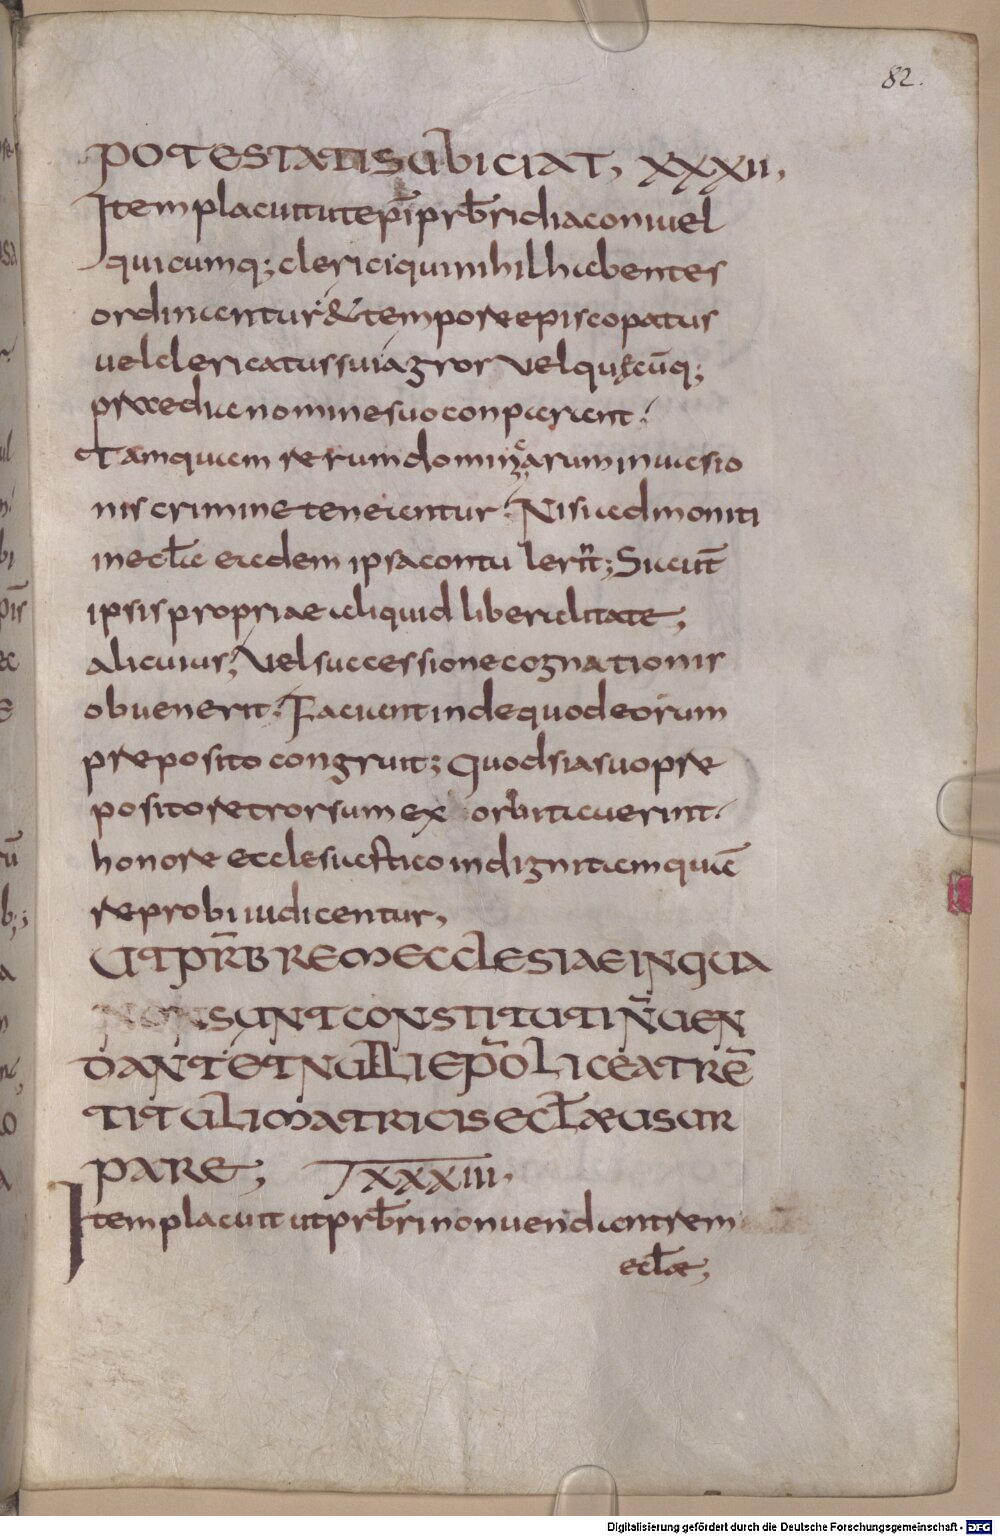 82.
POTESTATI SUBICIAT, XXXII,
Item placuit ut epi prbri diaconi uel
quicumq; clerici qui nihil habentes
ordinantur & tempore episcopatus
uel clericatus sui agror vel quęcūq;
predia nomine suo conparant.
tamquam rerum dominicarum inuasio
nis crimine tenerentur. Nisi admoniti
in ecla eadem ipsa contulert; Si aut
ipsis propriae aliquid liberalitate,
alicuius; Vel successione cognationis
obuenerit. Faciant inde quod eorum
preposito congruit; Quod si a suo pre
posito retrorsum exorbitauerint.
honore ecclesiastico indigni tamquā
reprobi iudicentur,
UT PRB REM ECCLESIAE IN QUA
NON SUNT CONSTITUTI N UEN
DANT ET NULLI EPO LICEAT RĒ
TITULI MATRICIS ECLAE USUR
PARE, XXXIII.
Item placuit ut prbri non uendant rem
eclae,
Digitalisierung gefördert durch die Deutsche Forschungsgemeinschaft - DFG